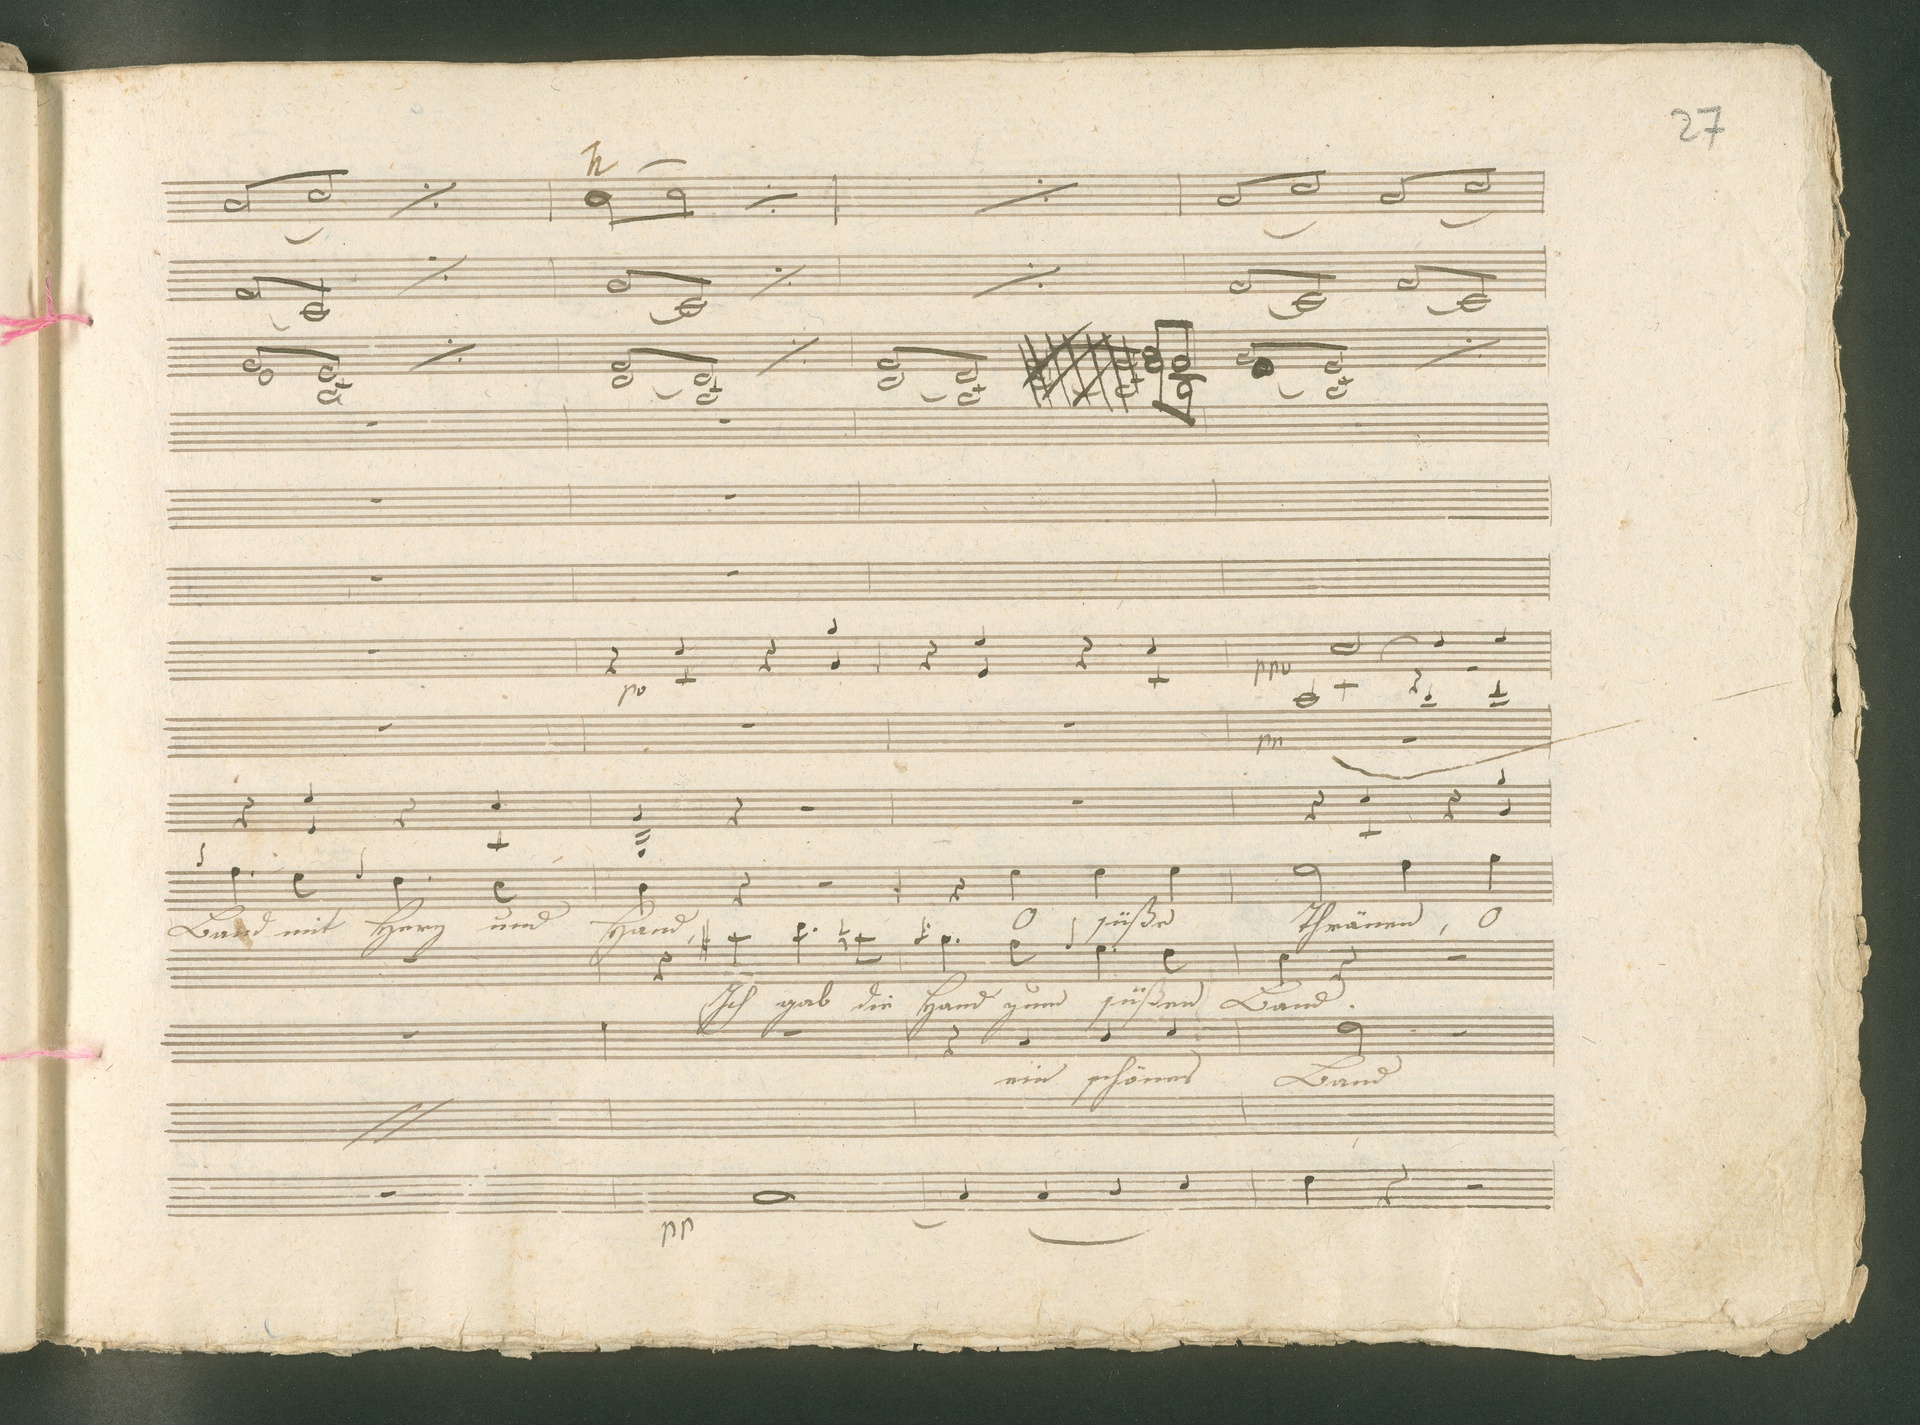 27
po
ppo
pp
Band mit Herz und Hand, O süße Thränen, O
Ich gab die Hand zum süßen Band.
ein schönes Band
pp